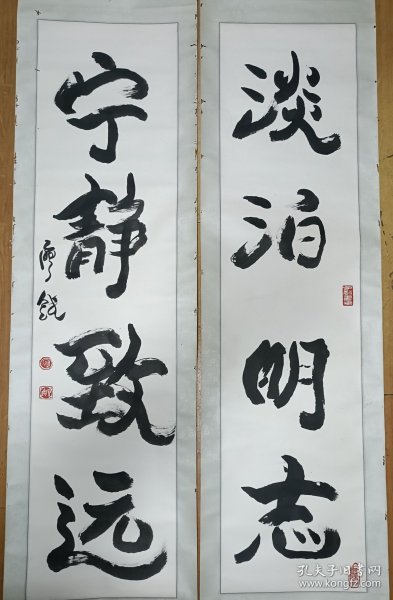 淡泊明志
宁静致远
孔夫子旧书网
www.kongfz.com